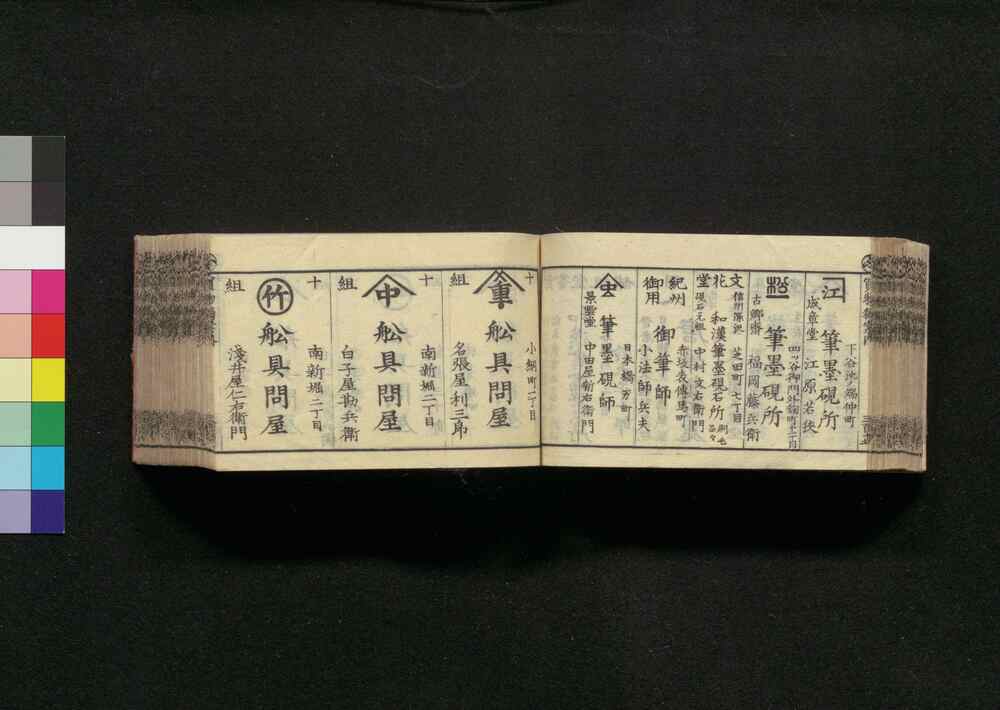 下谷池之端仲町
江 筆墨硯所
成章堂 江原若狹
四ツ谷御門外麹町十一丁目
筆墨硯所
古郷齋 福岡藤兵衛
文花堂
信州源池 芝田町七丁目
和漢筆墨硯石所
硯石元祖 中村文右衛門
紀州御用
赤坂表傳馬町
御筆師
小法師兵夫
日本橋 芳町
筆墨硯師
景雲堂 中田屋新右衛門
十組
小網町二丁目
舩具問屋
南新堀二丁目
名張屋利三郎
十組
中 舩具問屋
南新堀二丁目
白子屋勘兵衛
十組
竹 舩具問屋
淺井屋仁右衛門